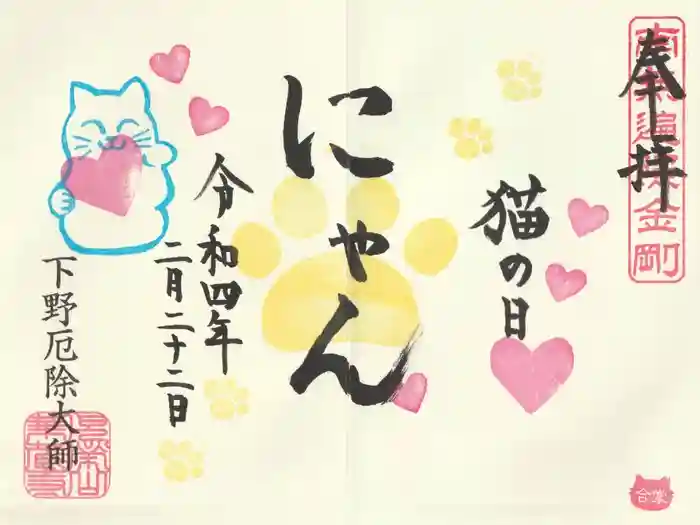 奉拝
南無遍照金剛
猫の日
にゃん
令和四年
二月二十二日
下野厄除大師
合掌